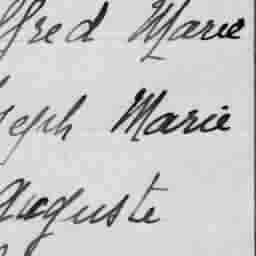 lfred Marie
seph Marie
Auguste